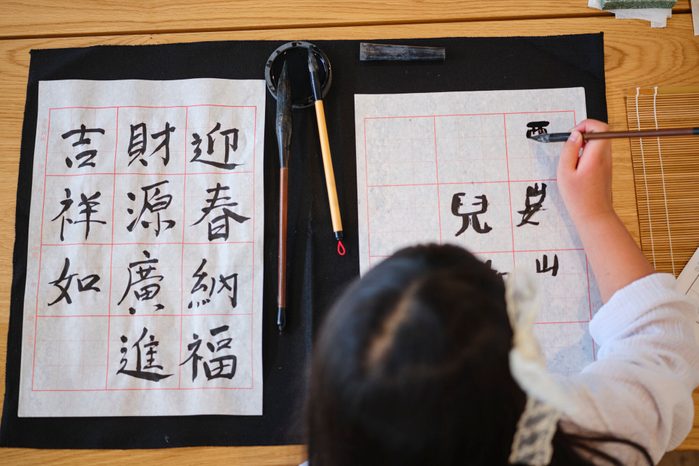 迎春納福
財源廣進
吉祥如
山
兒